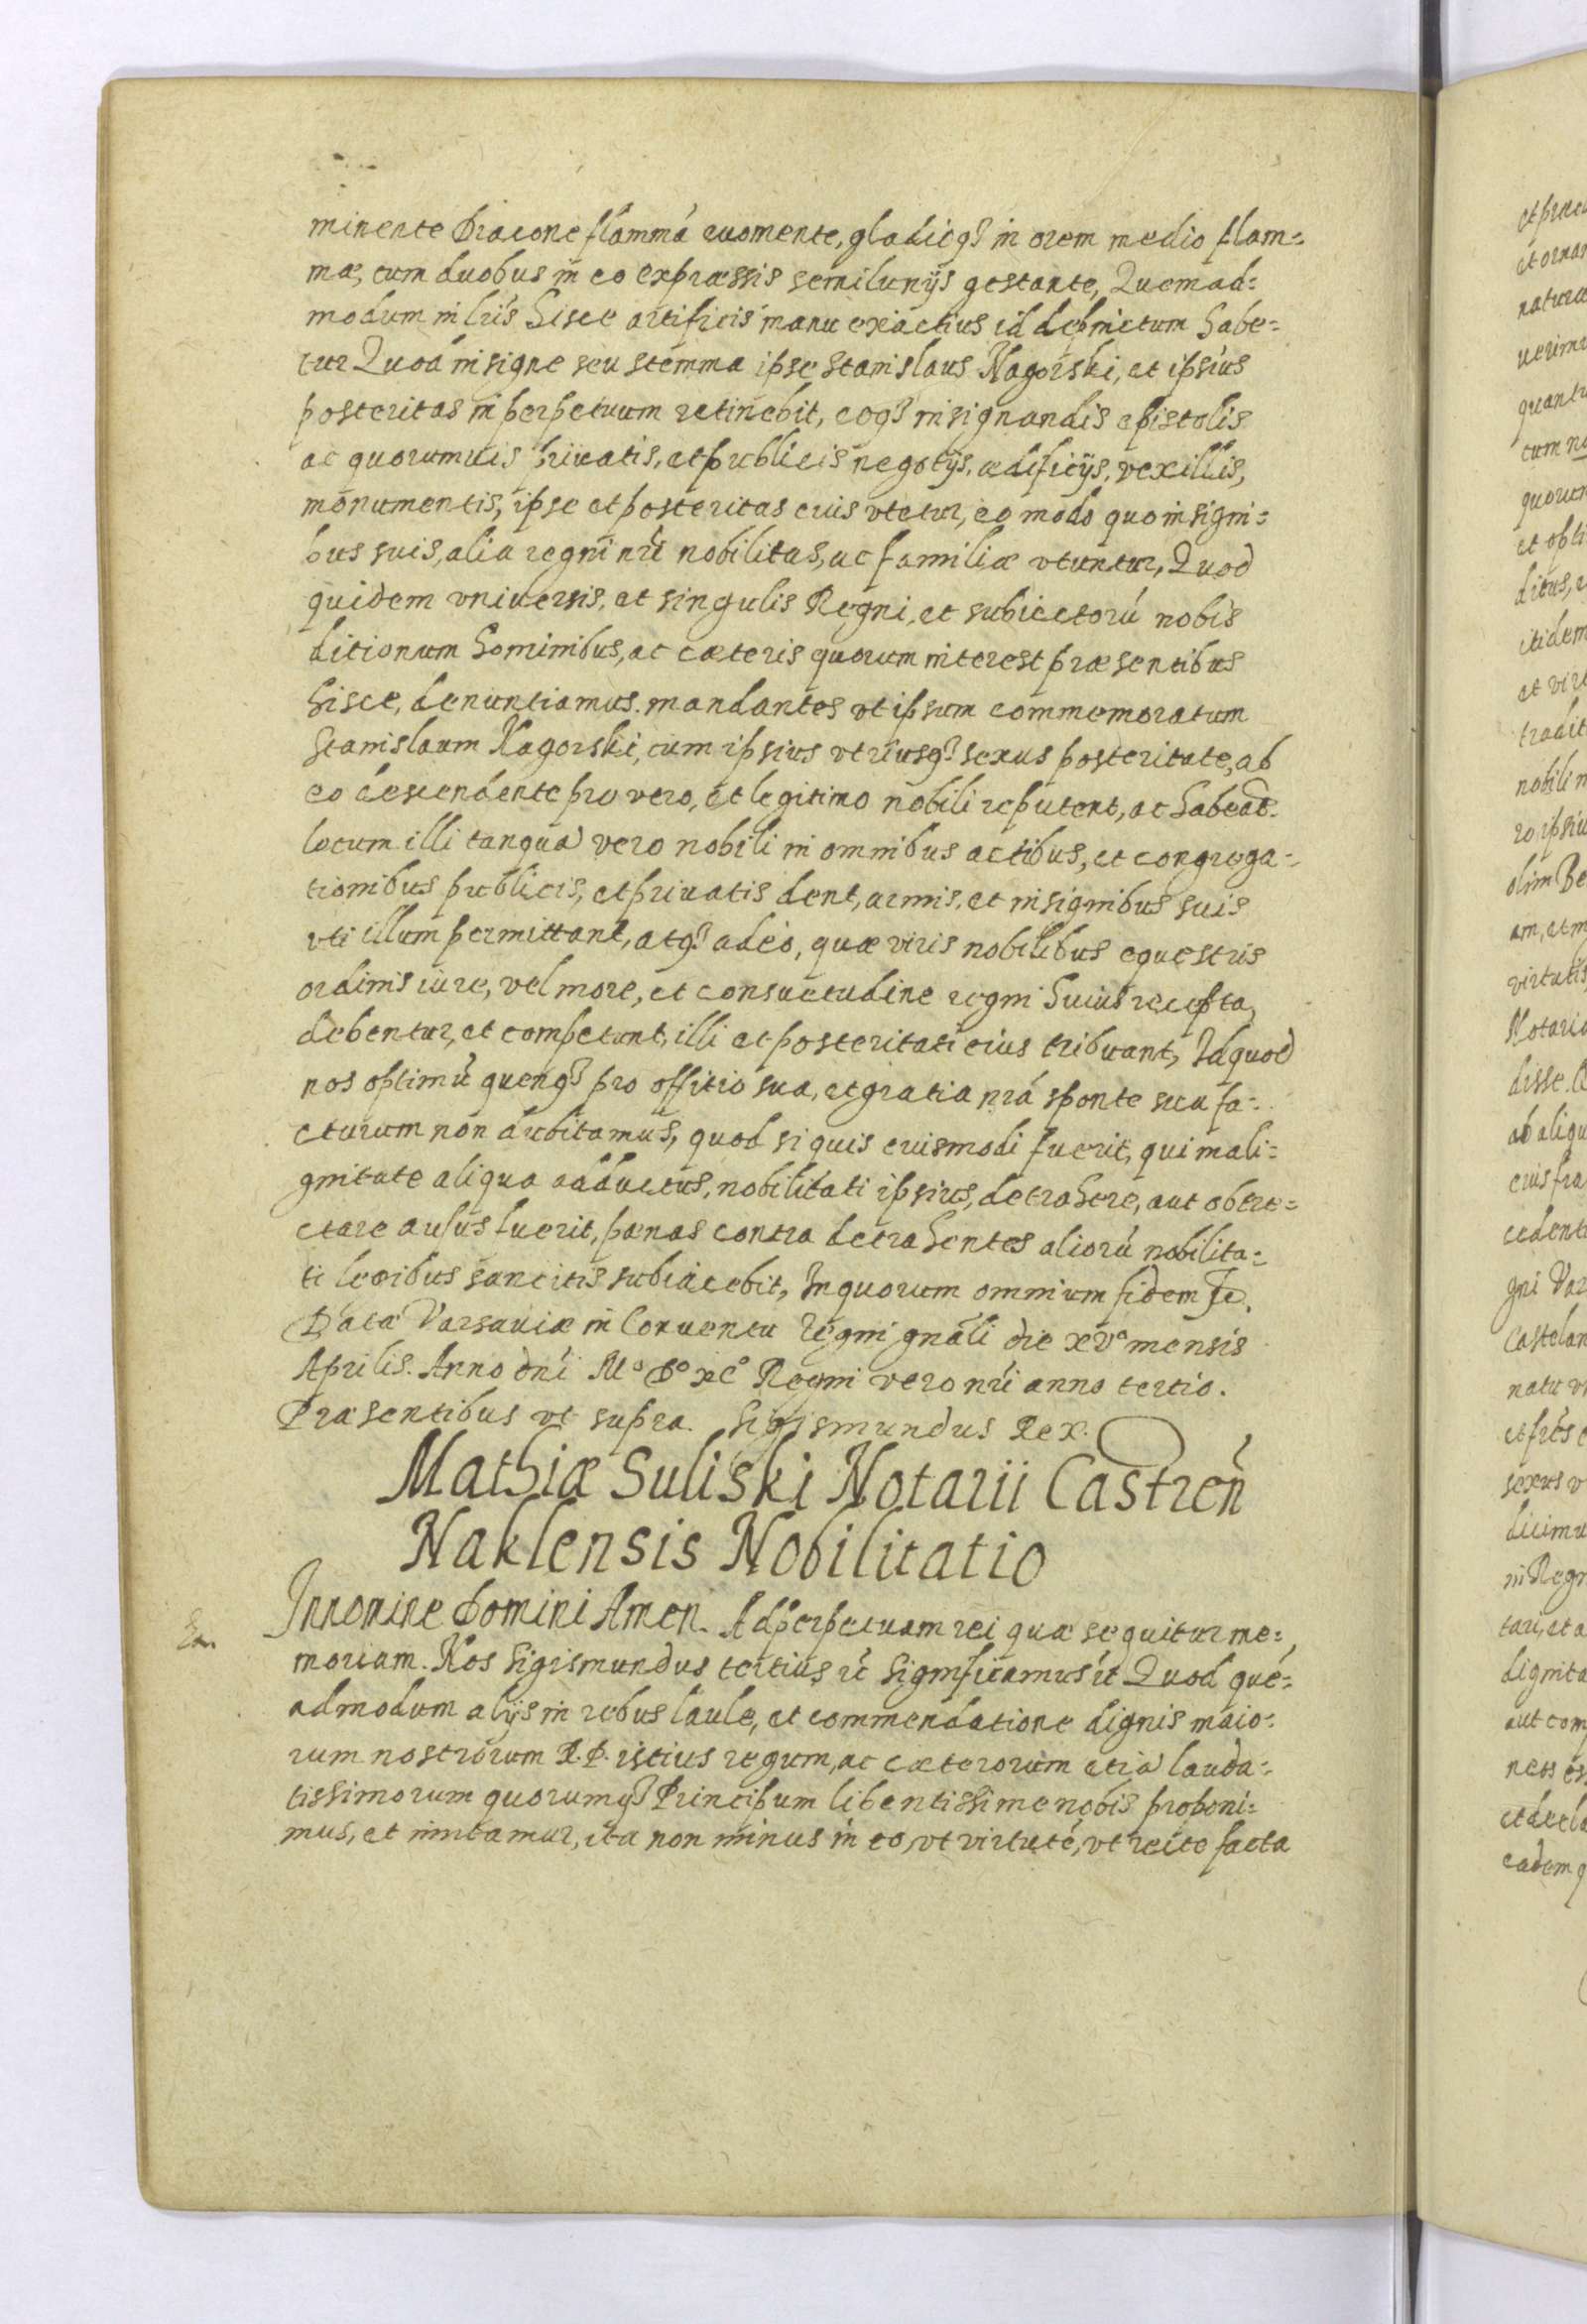 minente Dracone flammá euomente, gladioq3 in orem medio flam=
mæ, cum duobus in eo expræssis semilunijs gestante, Quemad=
modum in lrís hisce artificis manu exactius id depinctum habe=
tur Quod insigne seu stemma ipse Stanislaus Nagorski, et ipsius
posteritas in perpetuum retinebit, eoq3 in signandis epistolis
ac quorumuis priuatis, et publicis negotijs, ædificijs, vexillis,
monumentis, ipse et posteritas eius vtetur, eo modo quo insigni=
bus suis, alia regni nrí nobilitas, ac familiæ vtuntur, Quod
quidem vniuersis, et singulis Regni, et subiectorú nobis
ditionum hominibus, ac cæteris quorum interest præsentibus
hisce, denuntiamus. mandantes vt ipsum commemoratum
Stanislaum Nagorski, cum ipsius vtriusq3 sexus posteritate, ab
eo descendente pro vero, et legitimo nobili reputent, ac habeát
locum illi tanquá vero nobili in omnibus actibus, et congrega=
tionibus publicis, et priuatis dent, armis, et insignibus suis
vti illum permittant, atq3 adeo, quæ viris nobilibus equestris
ordinis iure, vel more, et consuetudine regni huius recepta,
debentur, et competunt, illi et posteritati eius tribuant, Id quod
nos optimú quenq3 pro offitio suo, et gratia nrá sponte sua fa=
cturum non dubitamus, quod si quis eiusmodi fuerit, qui mali=
gnitate aliqua adductus, nobilitati ipsius, detrahere, aut obtre=
ctare ausus fuerit, pænas contra detrahentes aliorú nobilita=
ti legibus sancitis subiacebit, In quorum omnium fidem
Data Varsauiæ in Conuentu Regni gnáli die xvª mensis
Aprilis. Anno dní Mº Dº xCº Regni vero nrí anno tertio.
Præsentibus vt supra. Sigismundus Rex.
Mathiæ Suliski Notarii Castreñ
Naklensis Nobilitatio
In nomine Domini Amen. Ad perpetuam rei quæ sequitur me=
moriam. Nos Sigismundus tertius ŕc Significamus ŕc Quod qué=
admodum alijs in rebus laude, et commendatione dignis maio=
rum nostrorum R. P. istius regum, ac cæterorum etiá lauda=
tissimorum quorumq3 Principum libentissime nobis proponi=
mus, et imitamur, ita non minus in eo, vt virtuté, vt recte facta